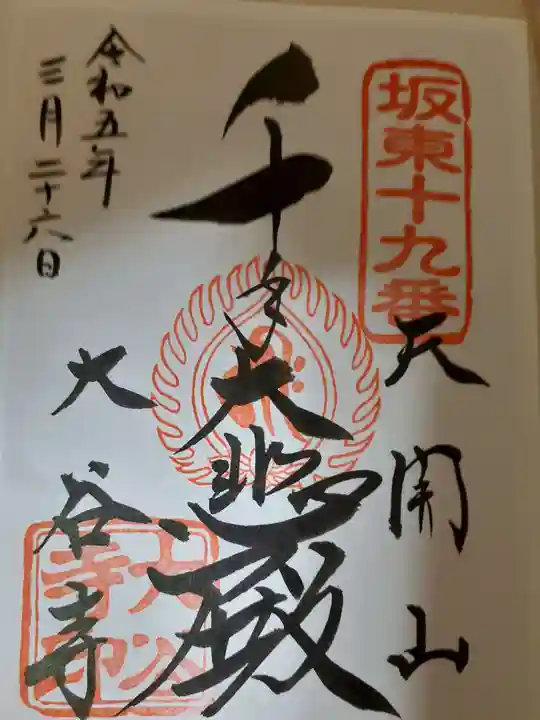 坂東十九番
天開山
千手大悲殿
大谷寺
令和五年
三月二十六日
大谷寺印